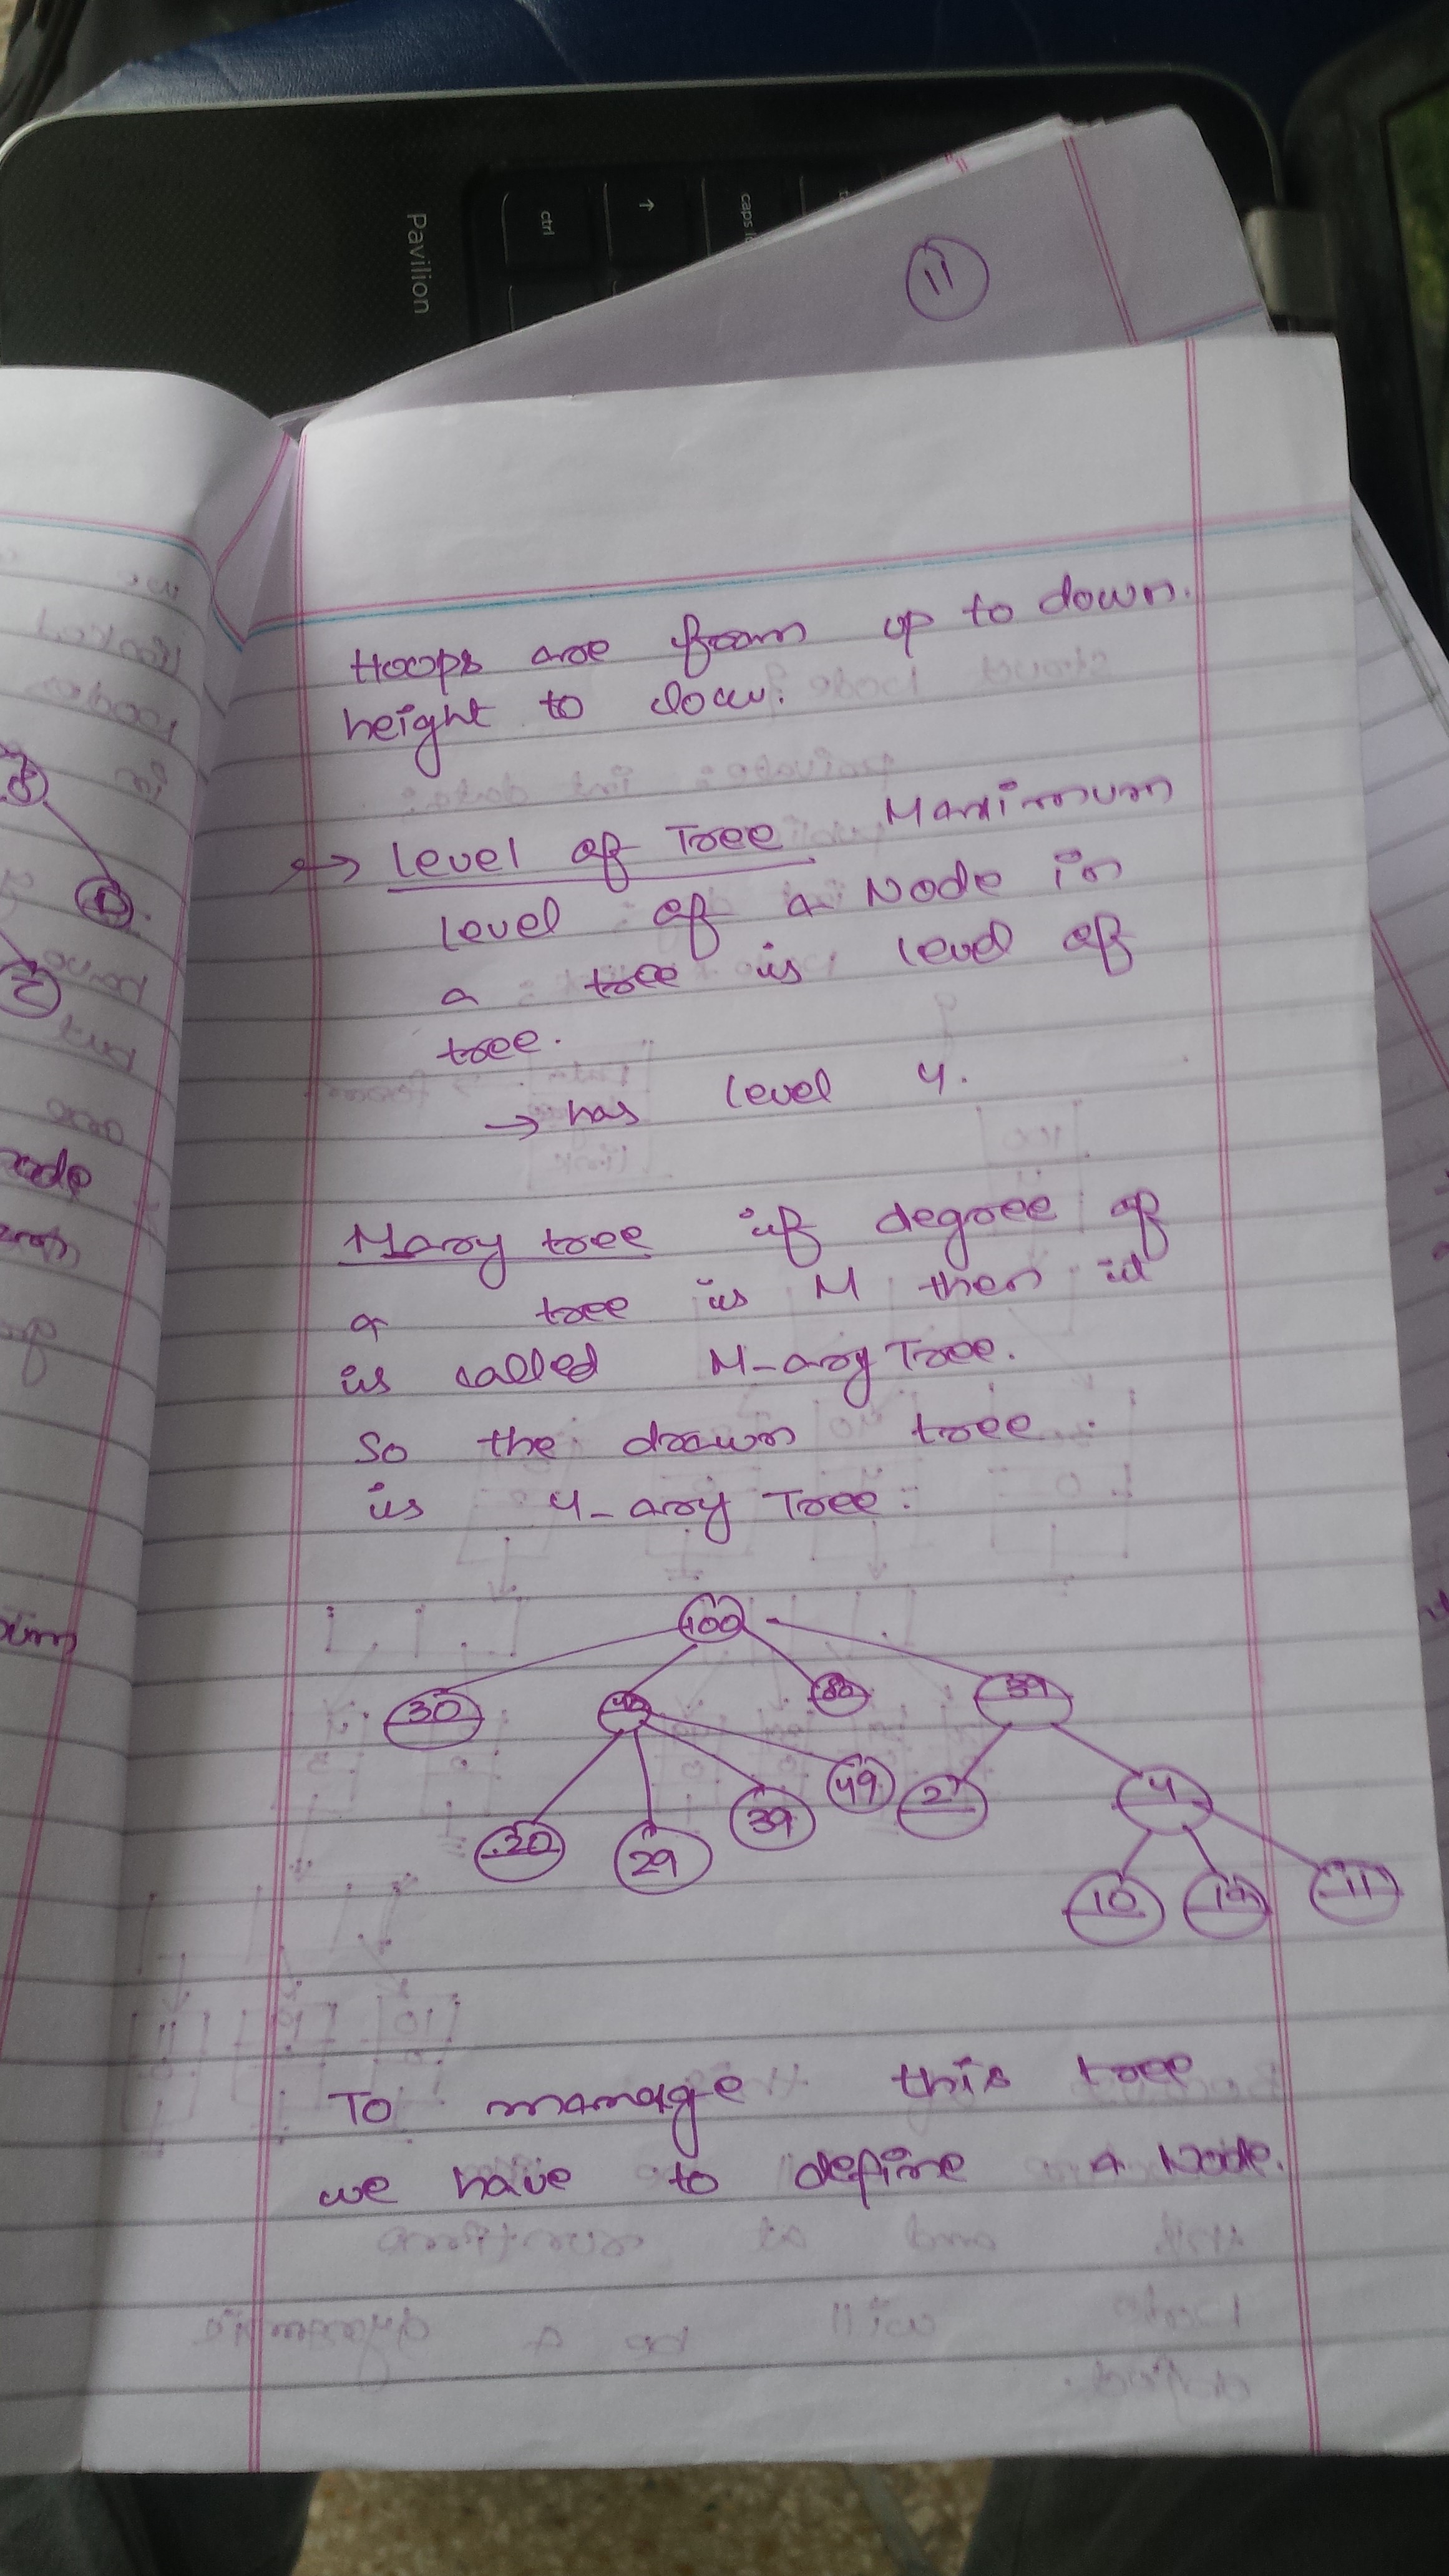 Pavilion
ctrl
caps
11
Hoops are from up to down.
height to down.
→ Level of Tree Maximum
Level of a Node in
a tree is level of
tree.
→ has level 4.
Mary tree if degree of
a tree is M then it
is called M-ary Tree.
So the drawn tree
is 4-ary Tree:
100
30 40 80 39
20 29 39 49 2 4
10 14 11
To manage this tree
we have to define a Node.